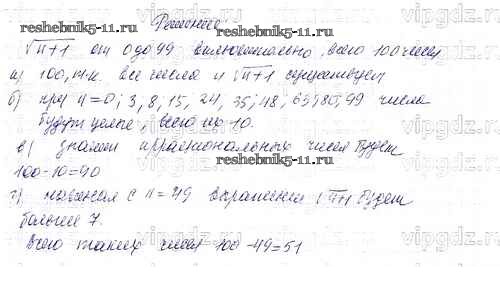 Решение
reshebnik5-11.ru
reshebnik5-11.ru
√n+1 от 0 до 99 включительно, всего 100 чисел
а) 100, т.к. все числа и √n+1 существуют
б) при n=0; 3, 8, 15, 24, 35, 48, 63, 80, 99 числа
будут целые, всего их 10.
в) иррациональных чисел будет
reshebnik5-11.ru
100-10=90
г) начиная с n=49 выражения √n+1 будет
больше 7.
Всего таких чисел 100-49=51
vipgdz.ru
vipgdz.ru
vipgdz.ru
vipgdz.ru